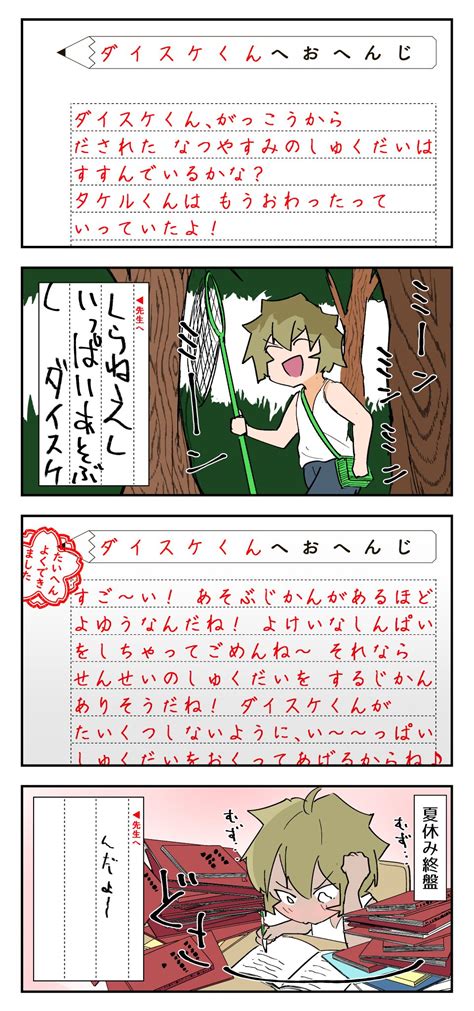 ダイスケくんへおへんじ
ダイスケくん、がっこうから
だされた なつやすみのしゅくだいは
すすんでいるかな?
タケルくんは もうおわったって
いっていたよ!
◀先生へ
しらねえし
いっぱいあそぶ
し ダイスケ
ミーンミーン
ミーンミーン
ダイスケくんへおへんじ
たいへん
よくでき
ました
すご〜い! あそぶじかんがあるほど
よゆうなんだね! よけいなしんぱい
をしちゃってごめんね〜 それなら
せんせいのしゅくだいを するじかん
ありそうだね! ダイスケくんが
たいくつしないように、い〜〜っぱい
しゅくだいをおくってあげるからね♪
夏休み終盤
むず…
むず…
ど〜ん
◀先生へ
んだよ〜